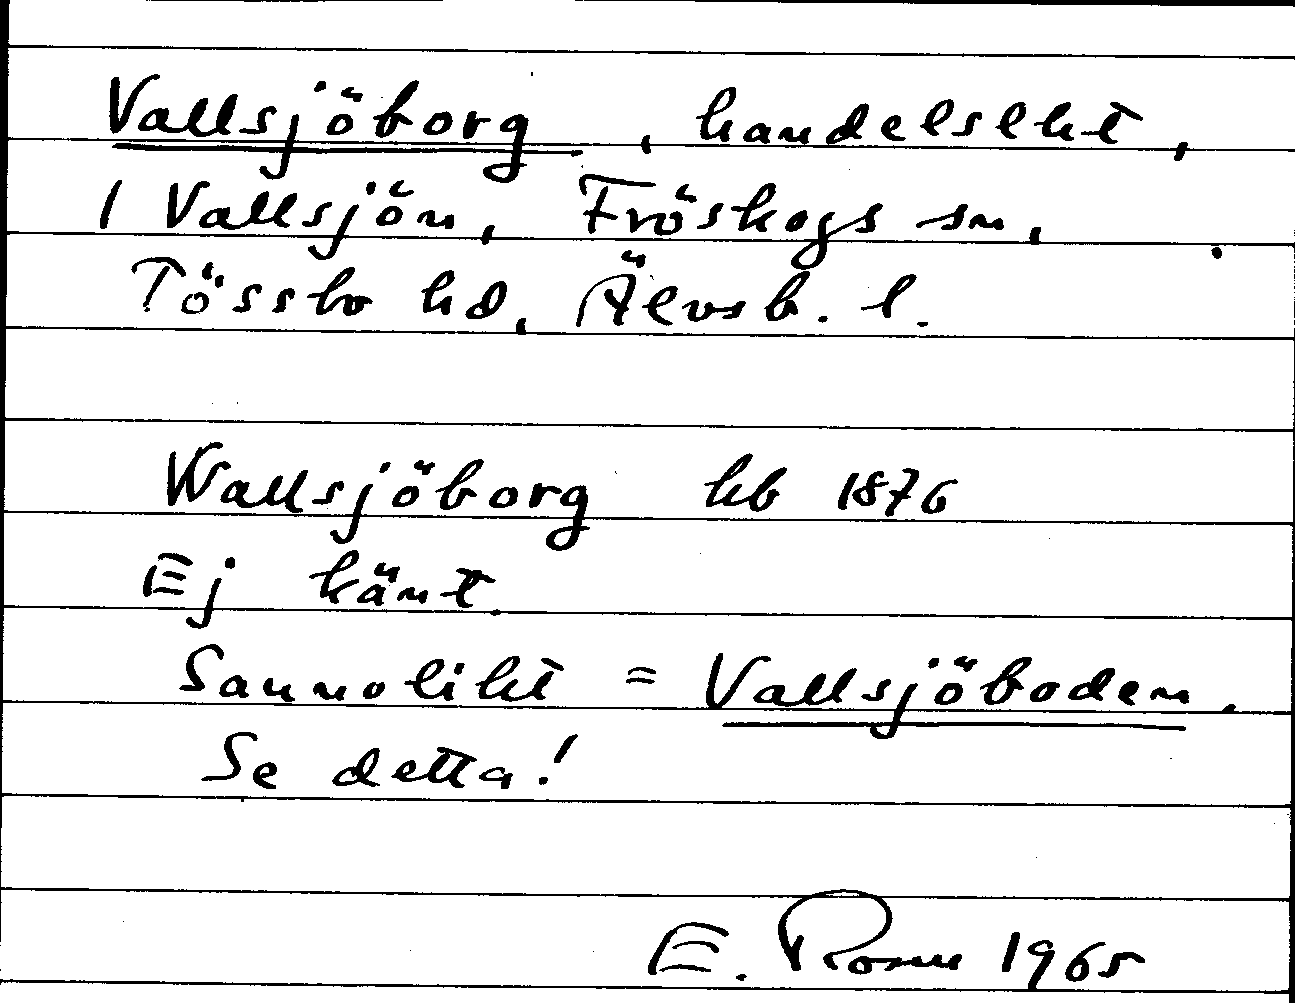 Vallsjöborg, handelslht,
1 Vallsjön, Fröskogs sn,
Tössbo hd, Älvsb. l.
Wallsjöborg hb 1876
Ej känt.
Sannolikt = Vallsjöboden.
Se detta!
E. Rosell 1965